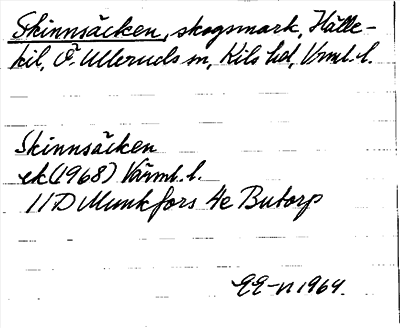 Skinnsäcken, skogsmark, Hälle-
kil, Ö. Ulleruds sn, Kils hd, Vrml. l.
Skinnsäcken
ek (1968) Värml. l.
11D Munkfors 4e Butorp
1964.